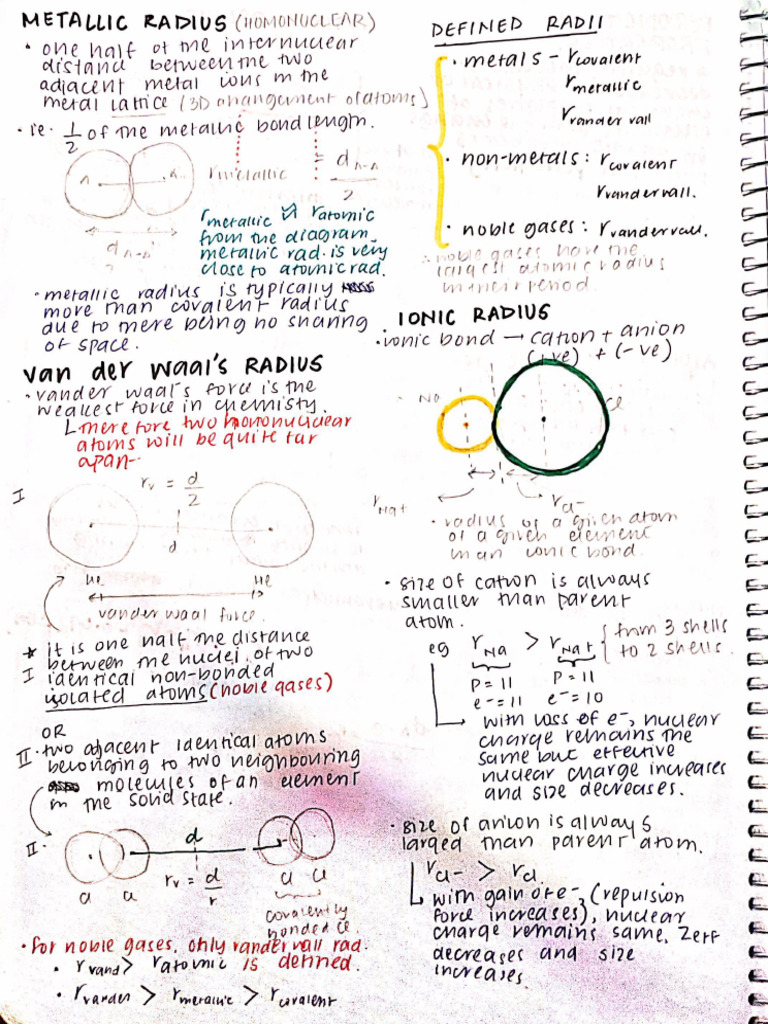 METALLIC RADIUS (HOMONUCLEAR)
• one half of the internuclear
distance between the two
adjacent metal ions in the
metal lattice (3D arrangement of atoms)
• ie. 1/2 of the metallic bond length.
r metallic = d n-n / 2
d n-n
r metallic ≈ r atomic
from the diagram,
metallic rad. is very
close to atomic rad.
• metallic radius is typically
more than covalent radius
due to there being no sharing
of space.
van der waal's RADIUS
• vander waal's force is the
weakest force in chemisty.
therefore two homonuclear
atoms will be quite far
apart.
I
rv = d/2
d
He He
vander waal force.
* it is one half the distance
I between the nuclei of two
identical non-bonded
isolated atoms (noble gases)
OR
II • two adjacent identical atoms
belonging to two neighbouring
molecules of an element
in the solid state.
II •
d
rv = d/r
Cl Cl Cl Cl
covalently
bonded Cl.
• for noble gases, only vander vall rad.
is defined.
• r vand > r atomic
• r vander > r metallic > r covalent
DEFINED RADII
• metals - r covalent
r metallic
r vander vall
• non-metals : r covalent
r vandervall.
• noble gases : r vandervall.
∴ noble gases have the
largest atomic radius
in their period.
IONIC RADIUS
• ionic bond → cation + anion
(+ve) + (-ve)
Na Cl
r Na+ r Cl-
• radius of a given atom
of a given element
in an ionic bond.
• size of cation is always
smaller than parent
atom.
eg r Na > r Na+ { from 3 shells
to 2 shells.
P = 11 P = 11
e⁻ = 11 e⁻ = 10
with loss of e⁻, nuclear
charge remains the
same but effective
nuclear charge increases
and size decreases.
• size of anion is always
larged than parent atom.
r Cl- > r Cl.
with gain of e⁻, (repulsion
force increases), nuclear
charge remains same, Zeff
decreases and size
increases.